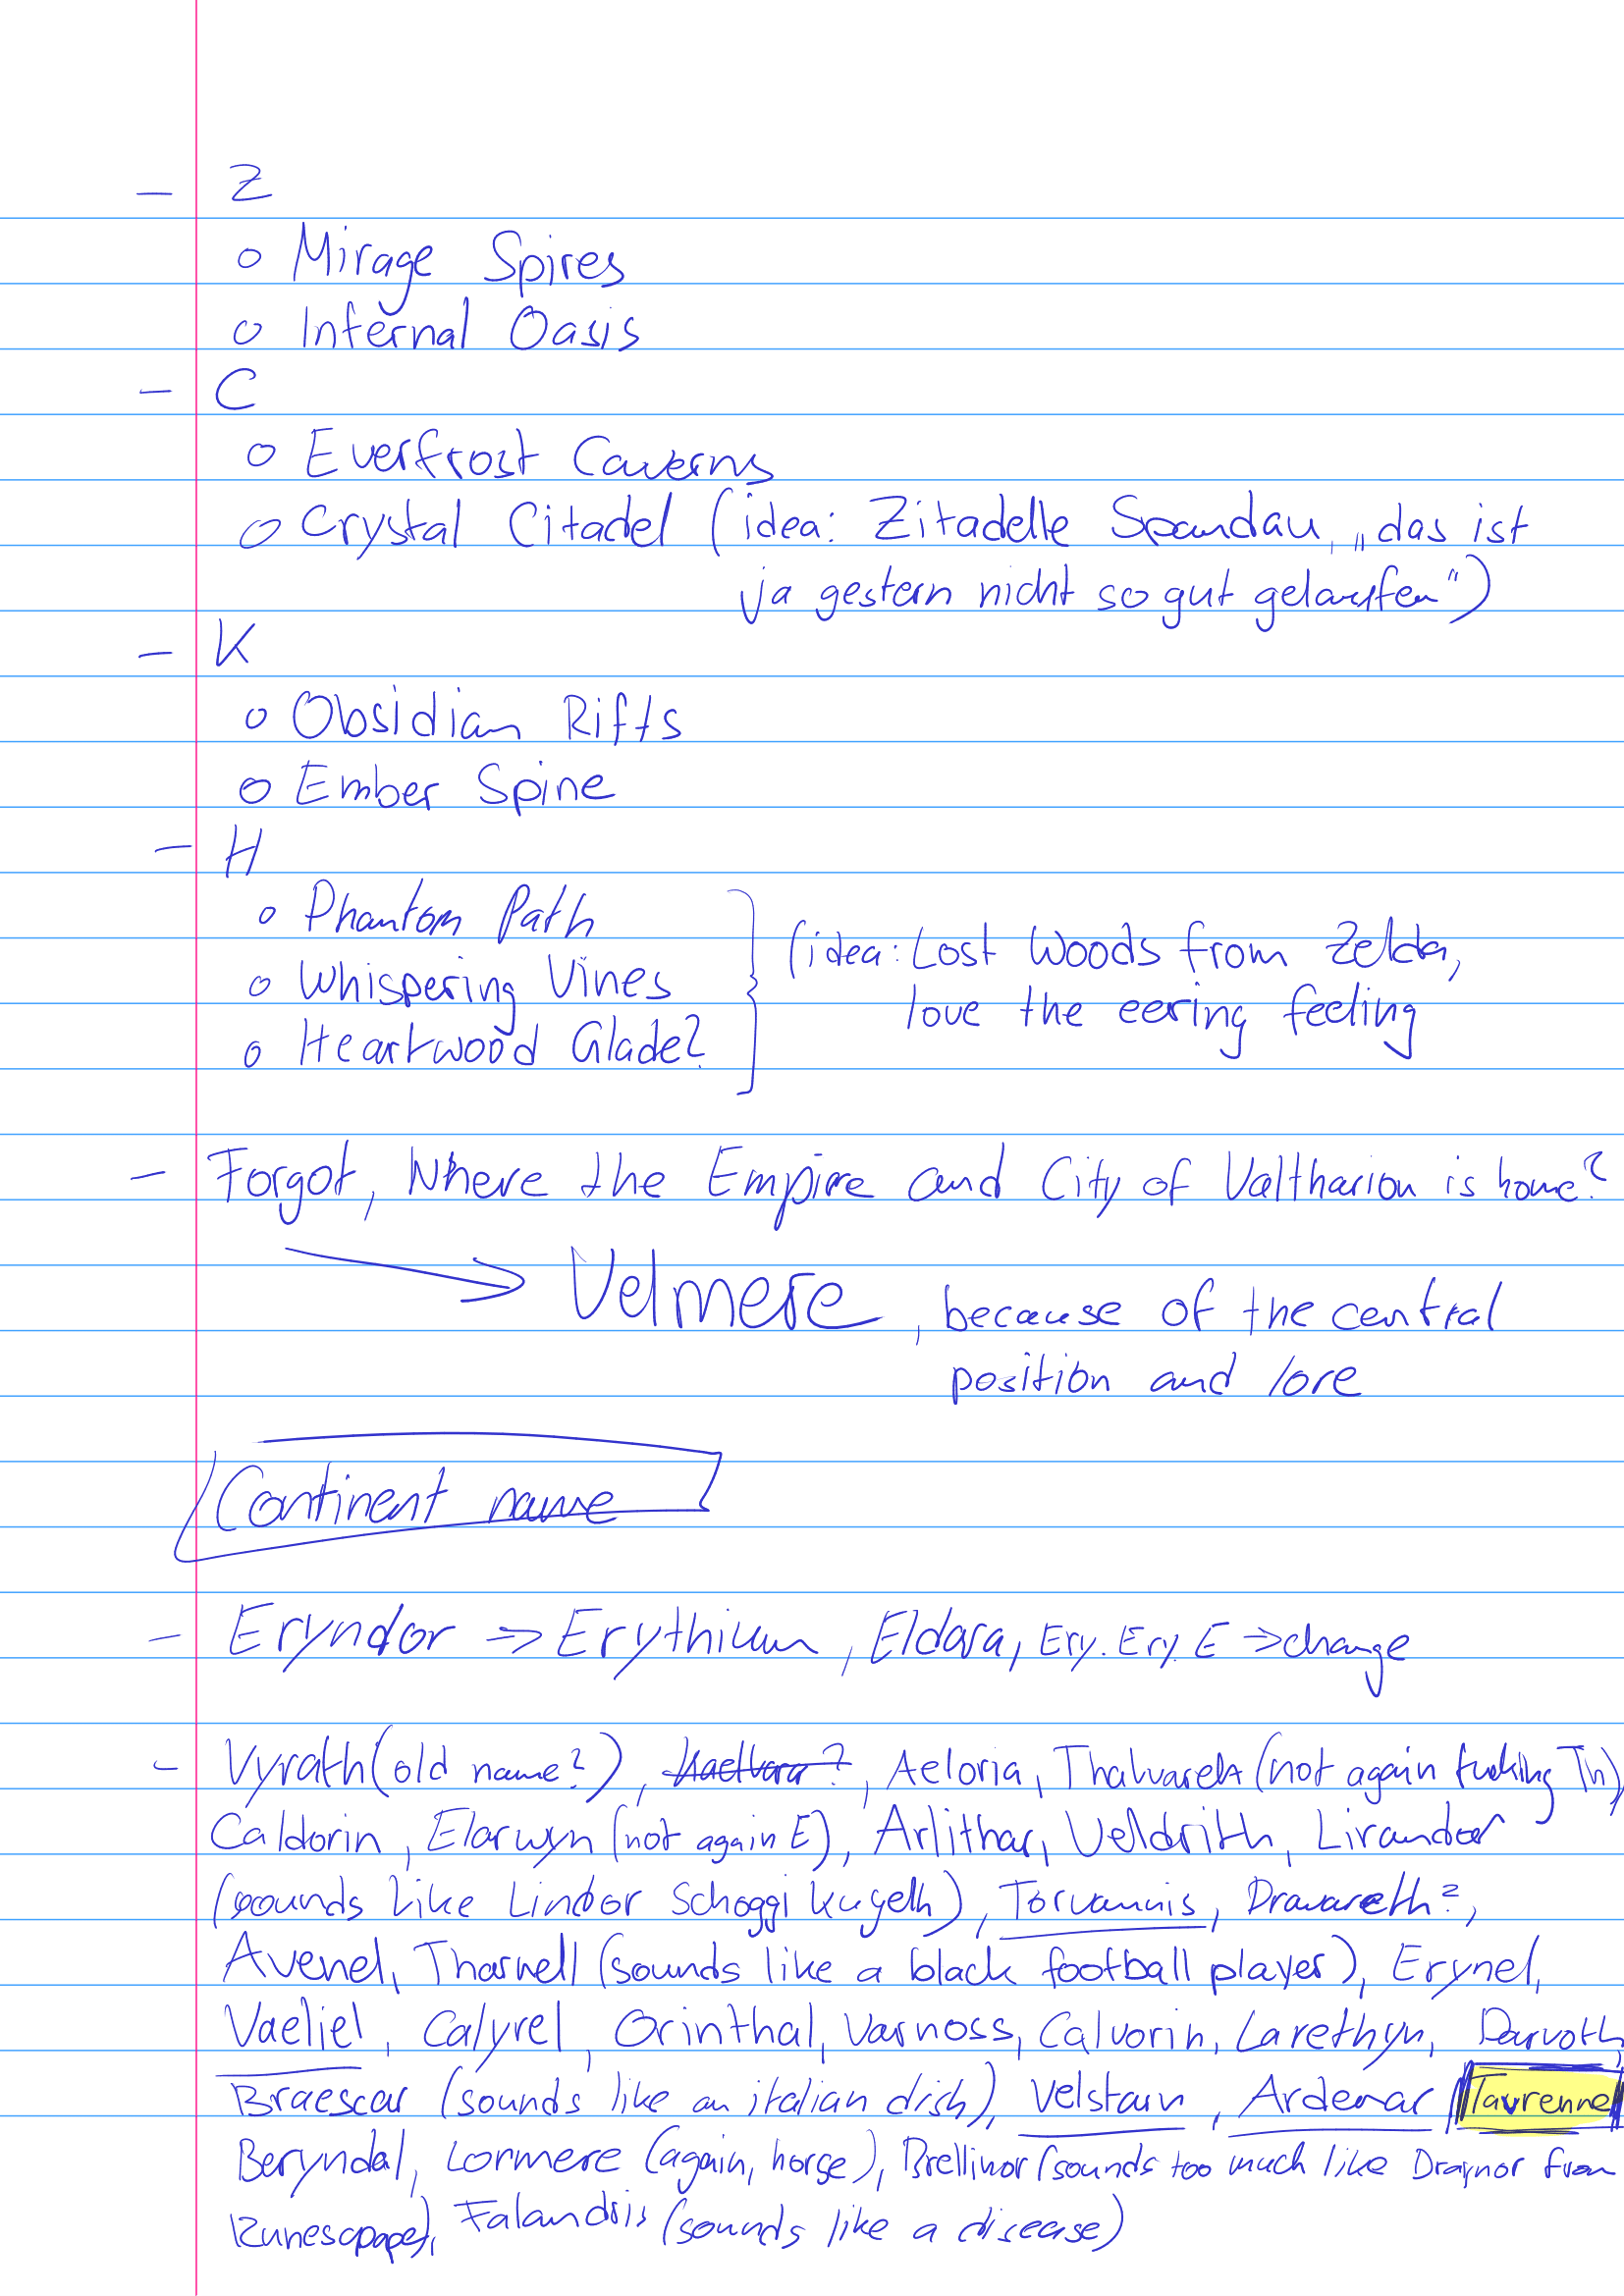 - Z
o Mirage Spires
o Infernal Oasis
- C
o Everfrost Caverns
o Crystal Citadel (idea: Zitadelle Spandau, „das ist
ja gestern nicht so gut gelaufen“)
- K
o Obsidian Rifts
o Ember Spine
- H
o Phantom Path
o Whispering Vines
o Heartwood Glade?
(idea: Lost Woods from Zelda,
love the eering feeling
- Forgot, Where the Empire and City of Valtharion is home?
→ Velmere, because of the central
position and lore
Continent name
- Eryndor → Erythium, Eldara, Ery. Ery. E → change
- Vyrath (old name?), Kaelvara?, Aeloria, Thalvareth (not again fucking Th),
Caldorin, Elarwyn (not again E), Arlithar, Veldrith, Lirandor
(sounds like Lindor Schoggi kugeln), Torvannis, Dravareth?,
Avenel, Tharnell (sounds like a black football player), Erynel,
Vaeliel, Calyrel, Orinthal, Varnoss, Calvorin, Larethyn, Darvoth,
Braescar (sounds like an italian dish), Velstarn, Ardenar, Tavrenne
Beryndal, Lormere (again, horse), Brellinor (sounds too much like Draynor from
Runescape), Falandris (sounds like a disease)